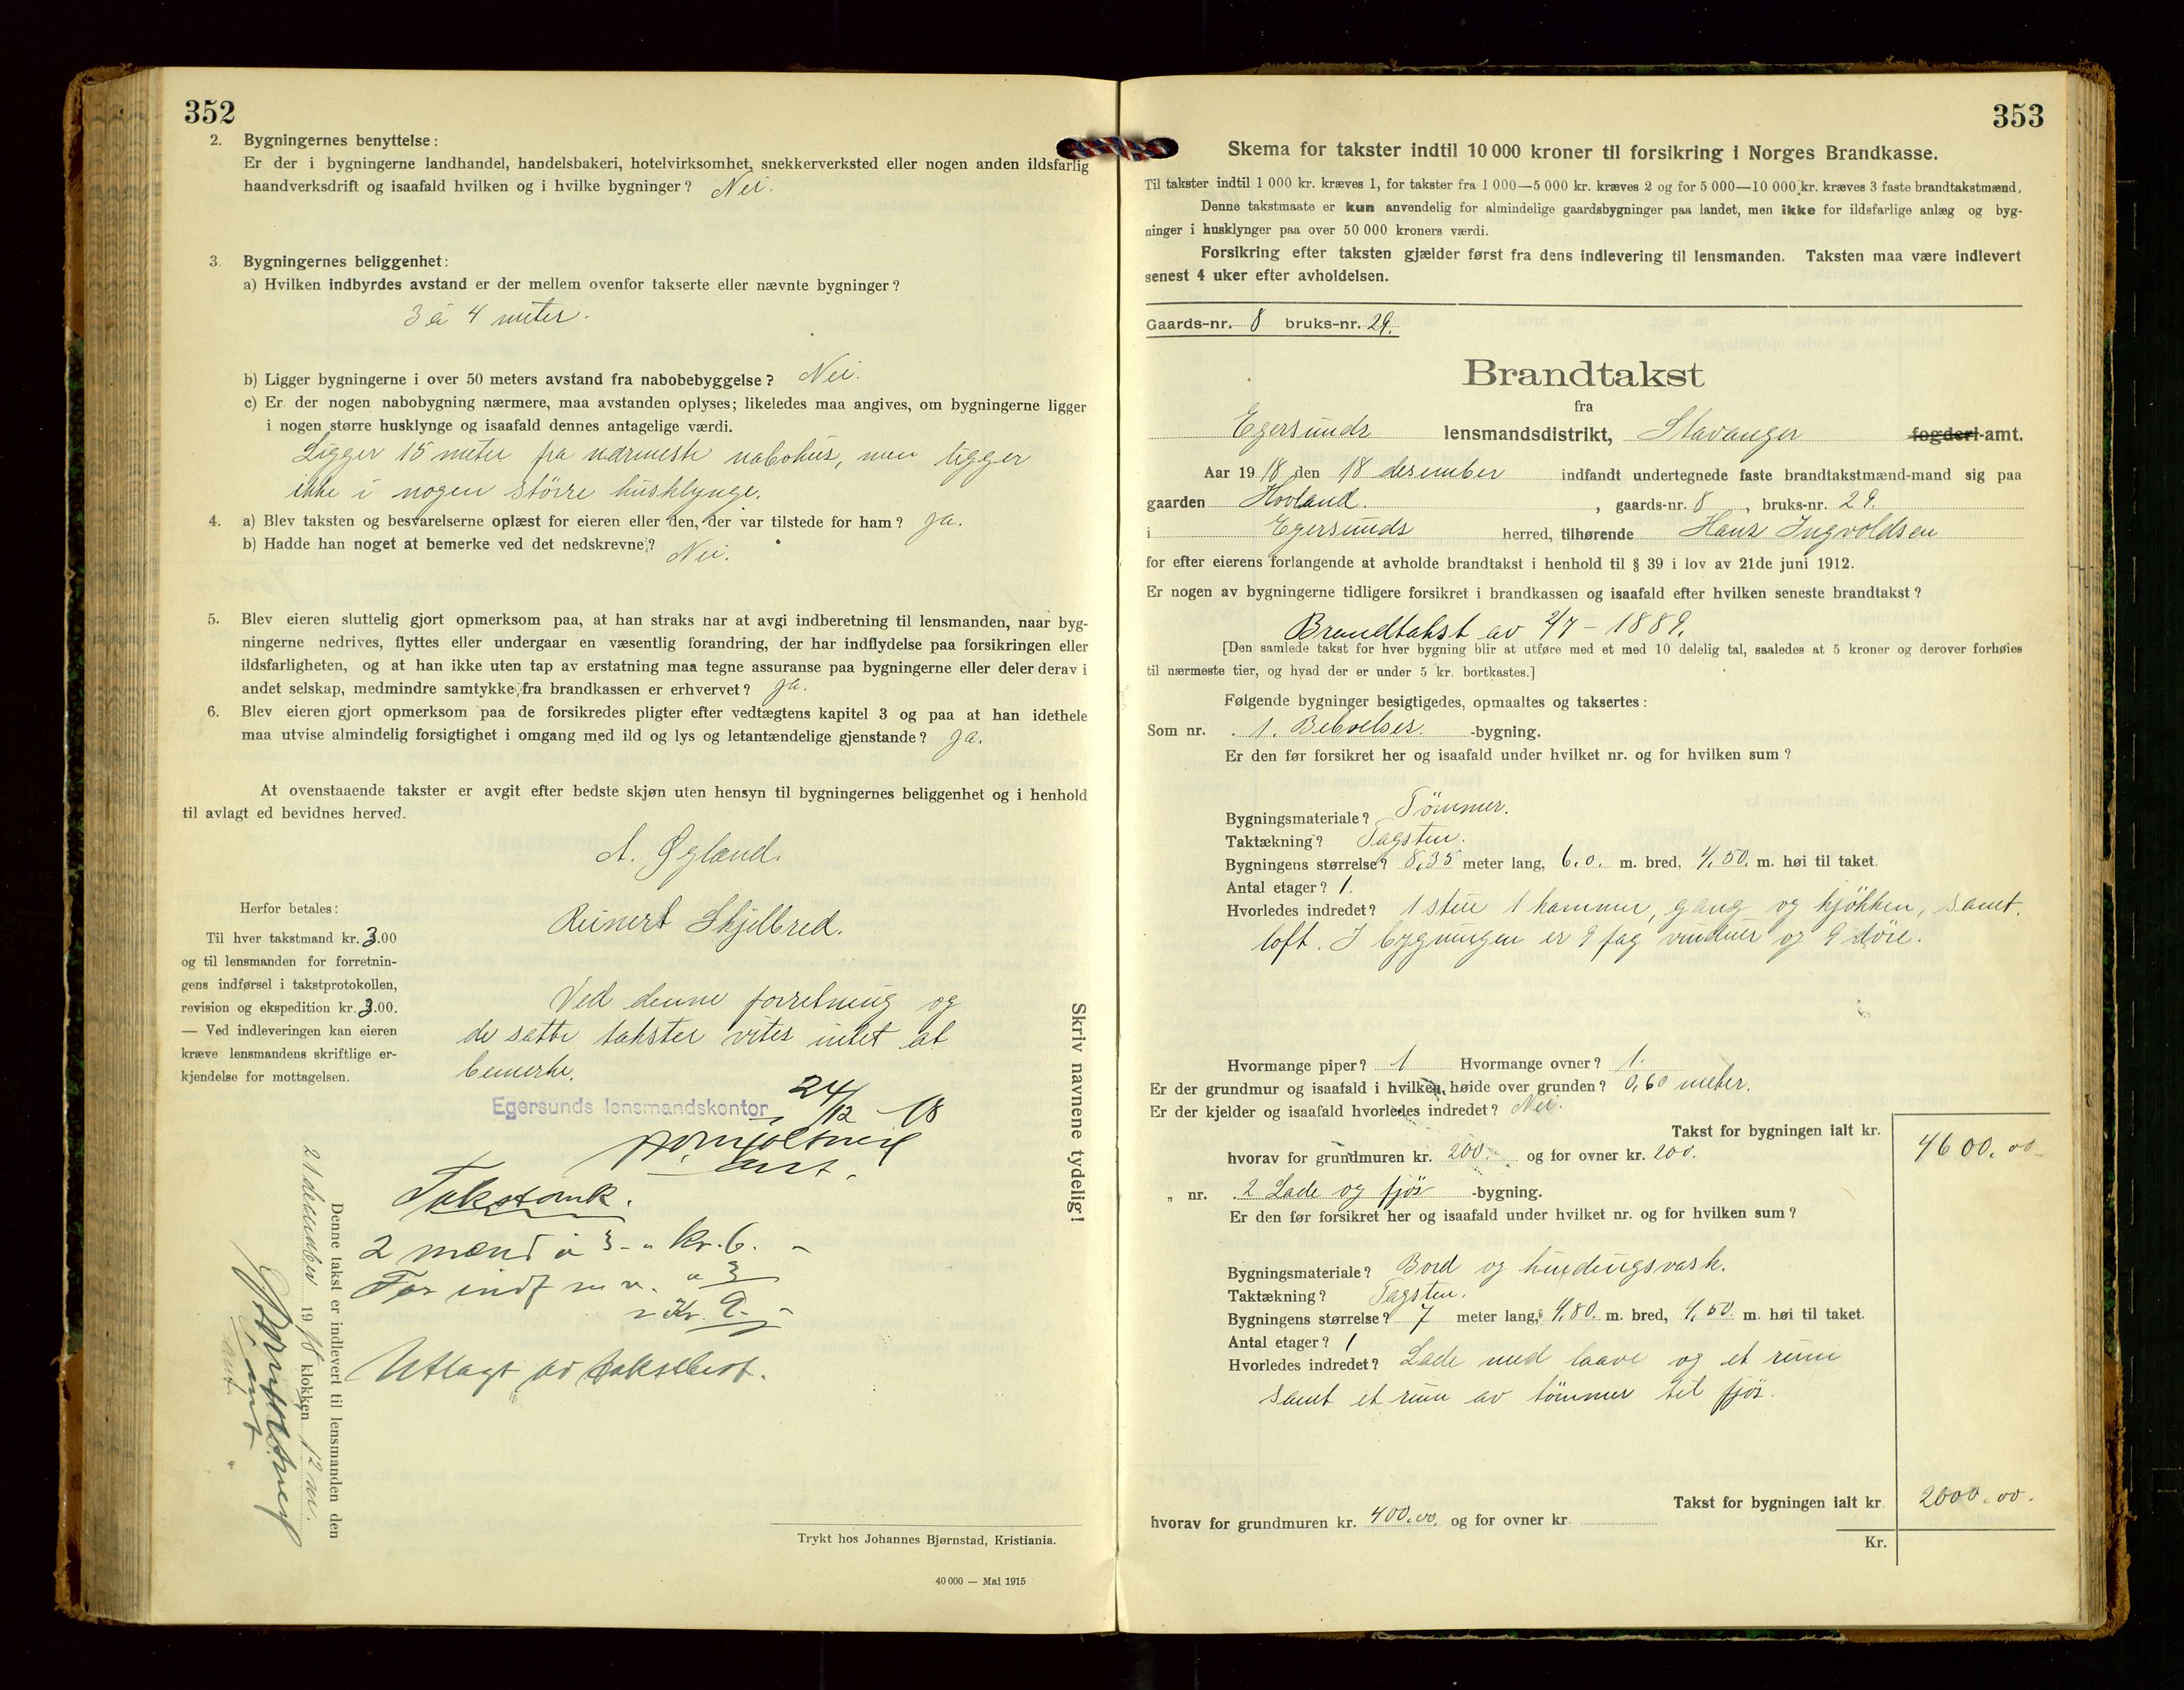 352
2. Bygningernes benyttelse:
Er der i bygningerne landhandel, handelsbakeri, hotelvirksomhet, snekkerverksted eller nogen anden ildsfarlig
haandverksdrift og isaafald hvilken og i hvilke bygninger? Nei.
3. Bygningernes beliggenhet:
a) Hvilken indbyrdes avstand er der mellem ovenfor takserte eller nævnte bygninger?
3 à 4 meter.
b) Ligger bygningerne i over 50 meters avstand fra nabobebyggelse? Nei.
c) Er der nogen nabobygning nærmere, maa avstanden oplyses; likeledes maa angives, om bygningerne ligger
i nogen større husklynge og isaafald dennes antagelige værdi.
Ligger 15 meter fra nærmeste nabohus, men ligger
ikke i nogen større husklynge.
4. a) Blev taksten og besvarelserne oplæst for eieren eller den, der var tilstede for ham? Ja.
b) Hadde han noget at bemerke ved det nedskrevne? Nei.
5. Blev eieren sluttelig gjort opmerksom paa, at han straks har at avgi indberetning til lensmanden, naar byg-
ningerne nedrives, flyttes eller undergaar en væsentlig forandring, der har indflydelse paa forsikringen eller
ildsfarligheten, og at han ikke uten tap av erstatning maa tegne assuranse paa bygningerne eller deler derav i
andet selskap, medmindre samtykke fra brandkassen er erhvervet? Ja.
6. Blev eieren gjort opmerksom paa de forsikredes pligter efter vedtægtens kapitel 3 og paa at han idethele
maa utvise almindelig forsigtighet i omgang med ild og lys og letantændelige gjenstande? Ja.
At ovenstaaende takster er avgit efter bedste skjøn uten hensyn til bygningernes beliggenhet og i henhold
til avlagt ed bevidnes herved.
A. Øgland.
Reinert Skjelbred.
Herfor betales:
Til hver takstmand kr. 3.00
og til lensmanden for forretnin-
gens indførsel i takstprotokollen,
revision og ekspedition kr. 3.00.
— Ved indleveringen kan eieren
kræve lensmandens skriftlige er-
kjendelse for mottagelsen.
Ved denne forretning og
de satte takster vites intet at
bemerke.
Egersunds lensmandskontor, 24/12 - 18
Takstomk.
2 mænd à 3 - " kr. 6. -
For indf m.v. " 3
Kr. 9. -
Utlagt av takstbest.
Skriv navnene tydelig!
Denne takst er indlevert til lensmanden den
21 desember 1918 klokken 12 m.
Trykt hos Johannes Bjørnstad, Kristiania.
40 000 — Mai 1915
353
Skema for takster indtil 10 000 kroner til forsikring i Norges Brandkasse.
Til takster indtil 1 000 kr. kræves 1, for takster fra 1 000—5 000 kr. kræves 2 og for 5 000—10 000 kr. kræves 3 faste brandtakstmænd.
Denne takstmaate er kun anvendelig for almindelige gaardsbygninger paa landet, men ikke for ildsfarlige anlæg og byg-
ninger i husklynger paa over 50 000 kroners værdi.
Forsikring efter taksten gjælder først fra dens indlevering til lensmanden. Taksten maa være indlevert
senest 4 uker efter avholdelsen.
Gaards-nr. 8 bruks-nr. 29.
Brandtakst
fra
Egersunds lensmandsdistrikt, Stavanger fogderi-amt.
Aar 1918 den 18 desember indfandt undertegnede faste brandtakstmænd-mand sig paa
gaarden Hovland, gaards-nr. 8, bruks-nr. 29.
i Egersunds herred, tilhørende Hans Ingvoldsen
for efter eierens forlangende at avholde brandtakst i henhold til § 39 i lov av 21de juni 1912.
Er nogen av bygningerne tidligere forsikret i brandkassen og isaafald efter hvilken seneste brandtakst?
Brandtakst av 2/7 - 1889.
[Den samlede takst for hver bygning blir at utføre med et med 10 delelig tal, saaledes at 5 kroner og derover forhøies
til nærmeste tier, og hvad der er under 5 kr. bortkastes.]
Følgende bygninger besigtigedes, opmaaltes og taksertes:
Som nr. 1. Beboelses -bygning.
Er den før forsikret her og isaafald under hvilket nr. og for hvilken sum?
Bygningsmateriale? Tømmer.
Taktækning? Tagsten.
Bygningens størrelse? 8,35 meter lang, 6,0. m. bred, 4,50. m. høi til taket.
Antal etager? 1.
Hvorledes indredet? 1 stue 1 kammer, gang og kjøkken, samt
loft. I bygningen er 9 fag vinduer og 9 døre.
Hvormange piper? 1 Hvormange ovner? 1.
Er der grundmur og isaafald i hvilken høide over grunden? 0,60 meter.
Er der kjelder og isaafald hvorledes indredet? Nei.
Takst for bygningen ialt kr. 4600.00
hvorav for grundmuren kr. 200. og for ovner kr. 200.
„ nr. 2 Lade og fjøs -bygning.
Er den før forsikret her og isaafald under hvilket nr. og for hvilken sum?
Bygningsmateriale? Bord og bindingsverk.
Taktækning? Tagsten.
Bygningens størrelse? 7 meter lang, 4,80. m. bred, 4,50. m. høi til taket.
Antal etager? 1
Hvorledes indredet? Lade med laave og et rum
samt et rum av tømmer til fjøs.
Takst for bygningen ialt kr. 2000.00.
hvorav for grundmuren kr. 400.00. og for ovner kr.
Kr.